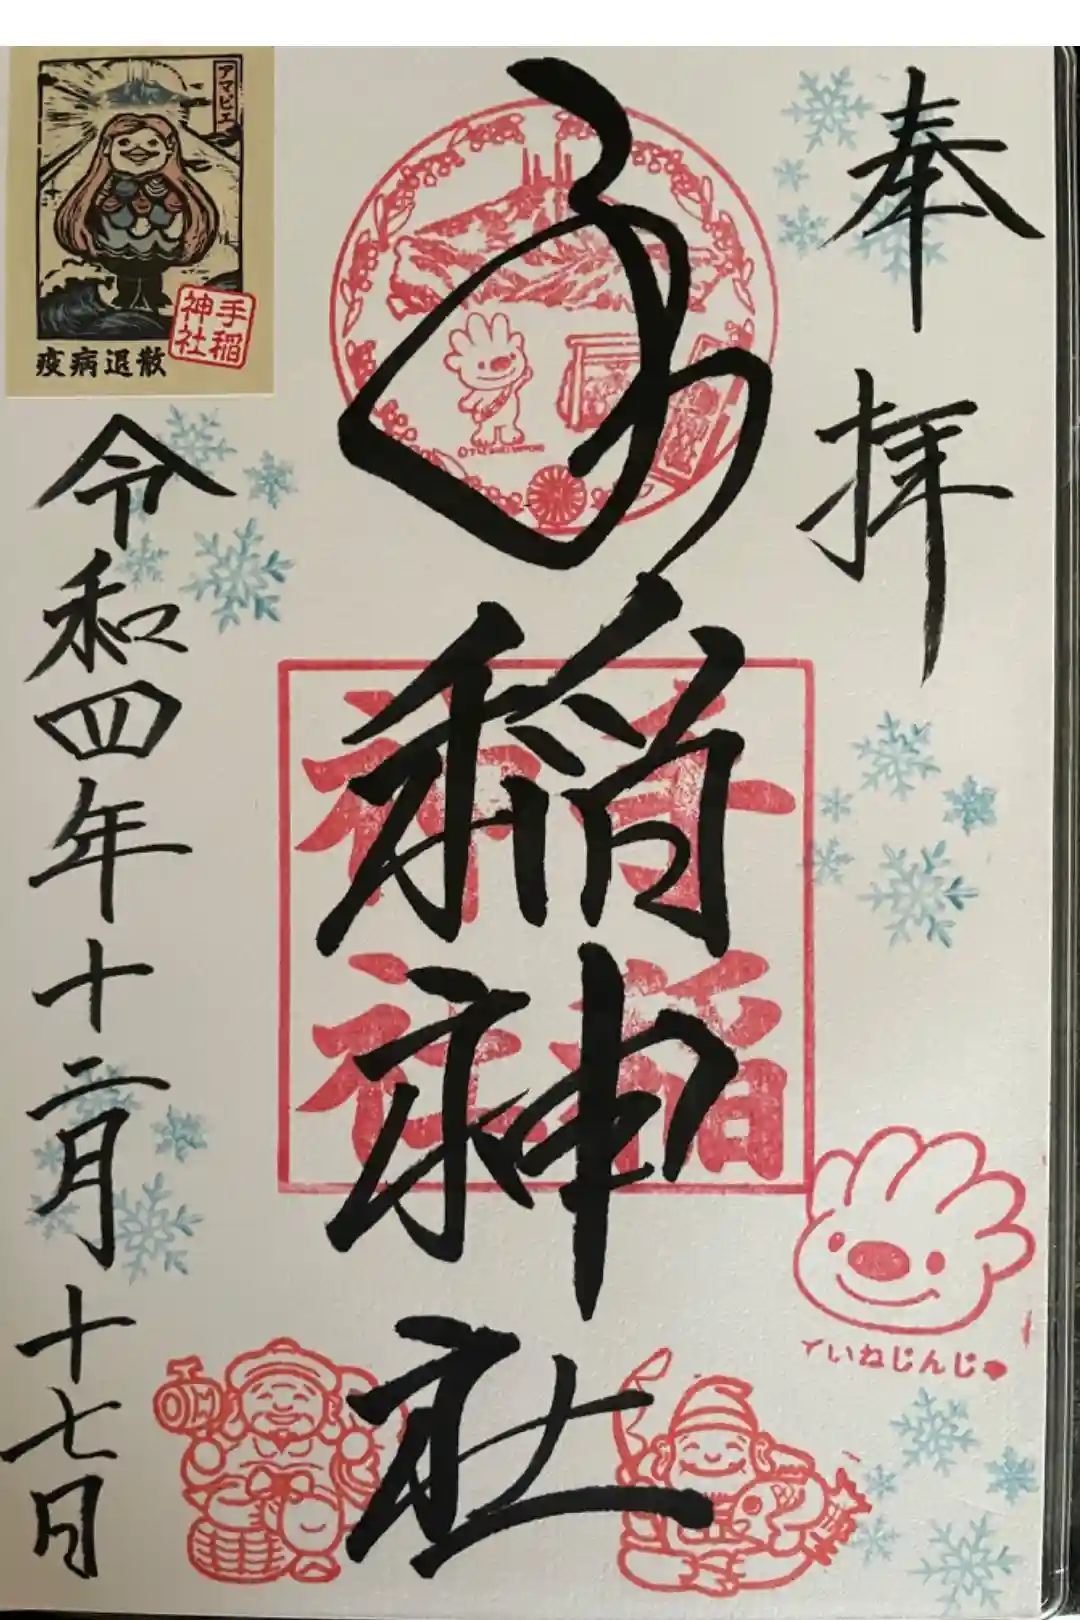 奉拝
手稲神社
手稲
神社
ていねじんじゃ
令和四年十二月十七日
アマビエ
手稲
神社
疫病退散